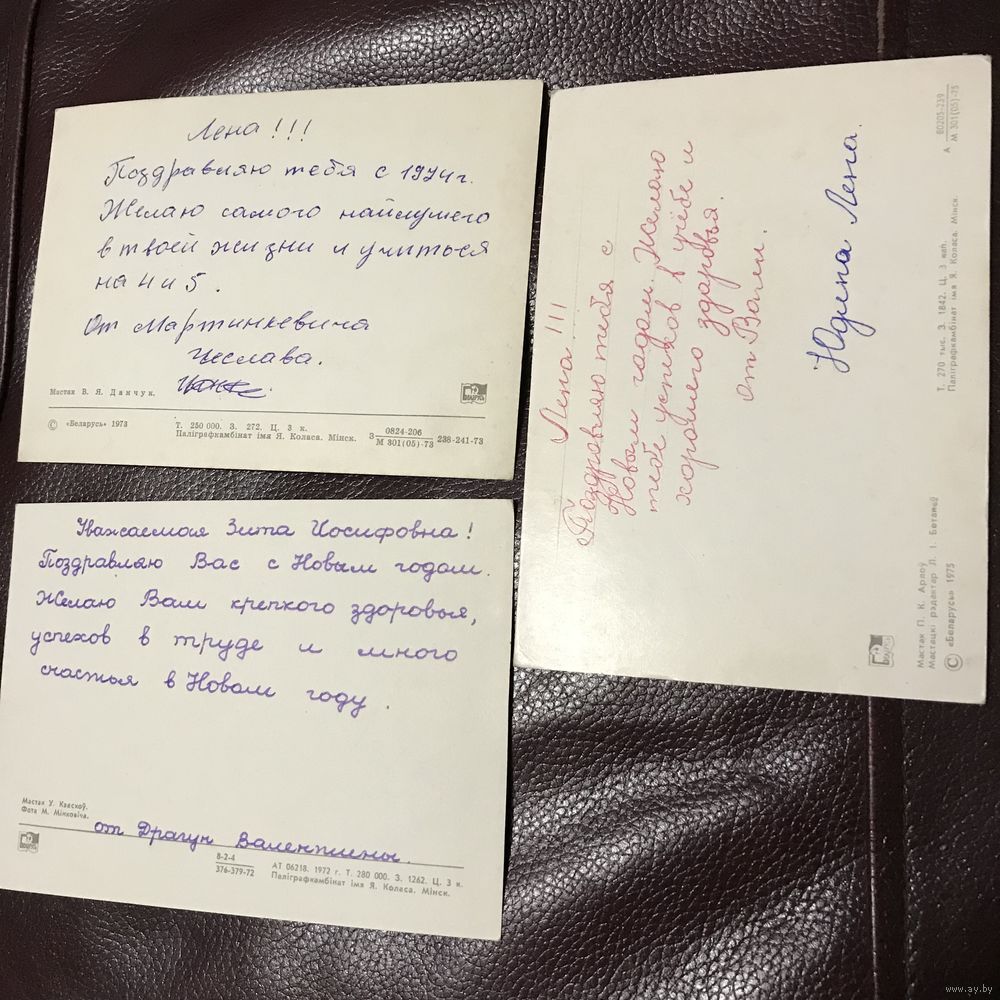 Лена!!!
Поздравляю тебя с 1974г.
Желаю самого найлучшего
в твоей жизни и учиться
на 4 и 5.
От Мартинкевича
Чеслава.
Мастак В. Я. Данчук.
© «Беларусь» 1973
Т. 250 000. З. 272. Ц. 3 к.
Паліграфкамбінат імя Я. Коласа. Мінск.
0824-206
М 301(05)-73
238-241-73
Уважаемая Зита Иосифовна!
Поздравляю Вас с Новым годом.
Желаю Вам крепкого здоровья,
успехов в труде и много
счастья в Новом году.
от Драгун Валентины.
Фота М. Мінковіча.
8-2-4
376-379-72
АТ 06218. 1972 г. Т. 280 000. З. 1262. Ц. 3 к.
Паліграфкамбінат імя Я. Коласа. Мінск.
Лена!!!
Поздравляю тебя с
Новым годом. Желаю
тебе успехов в учёбе и
хорошего здоровья.
от Вали.
Лена.
Мастак П. К. Арлоў
Мастацкі рэдактар Л. І.
© «Беларусь» 1975
Т. 270 тыс. З. 1842. Ц. 3 кап.
Паліграфкамбінат імя Я. Коласа. Мінск.
А
80205-239
М 301(05)-75
www.ay.by